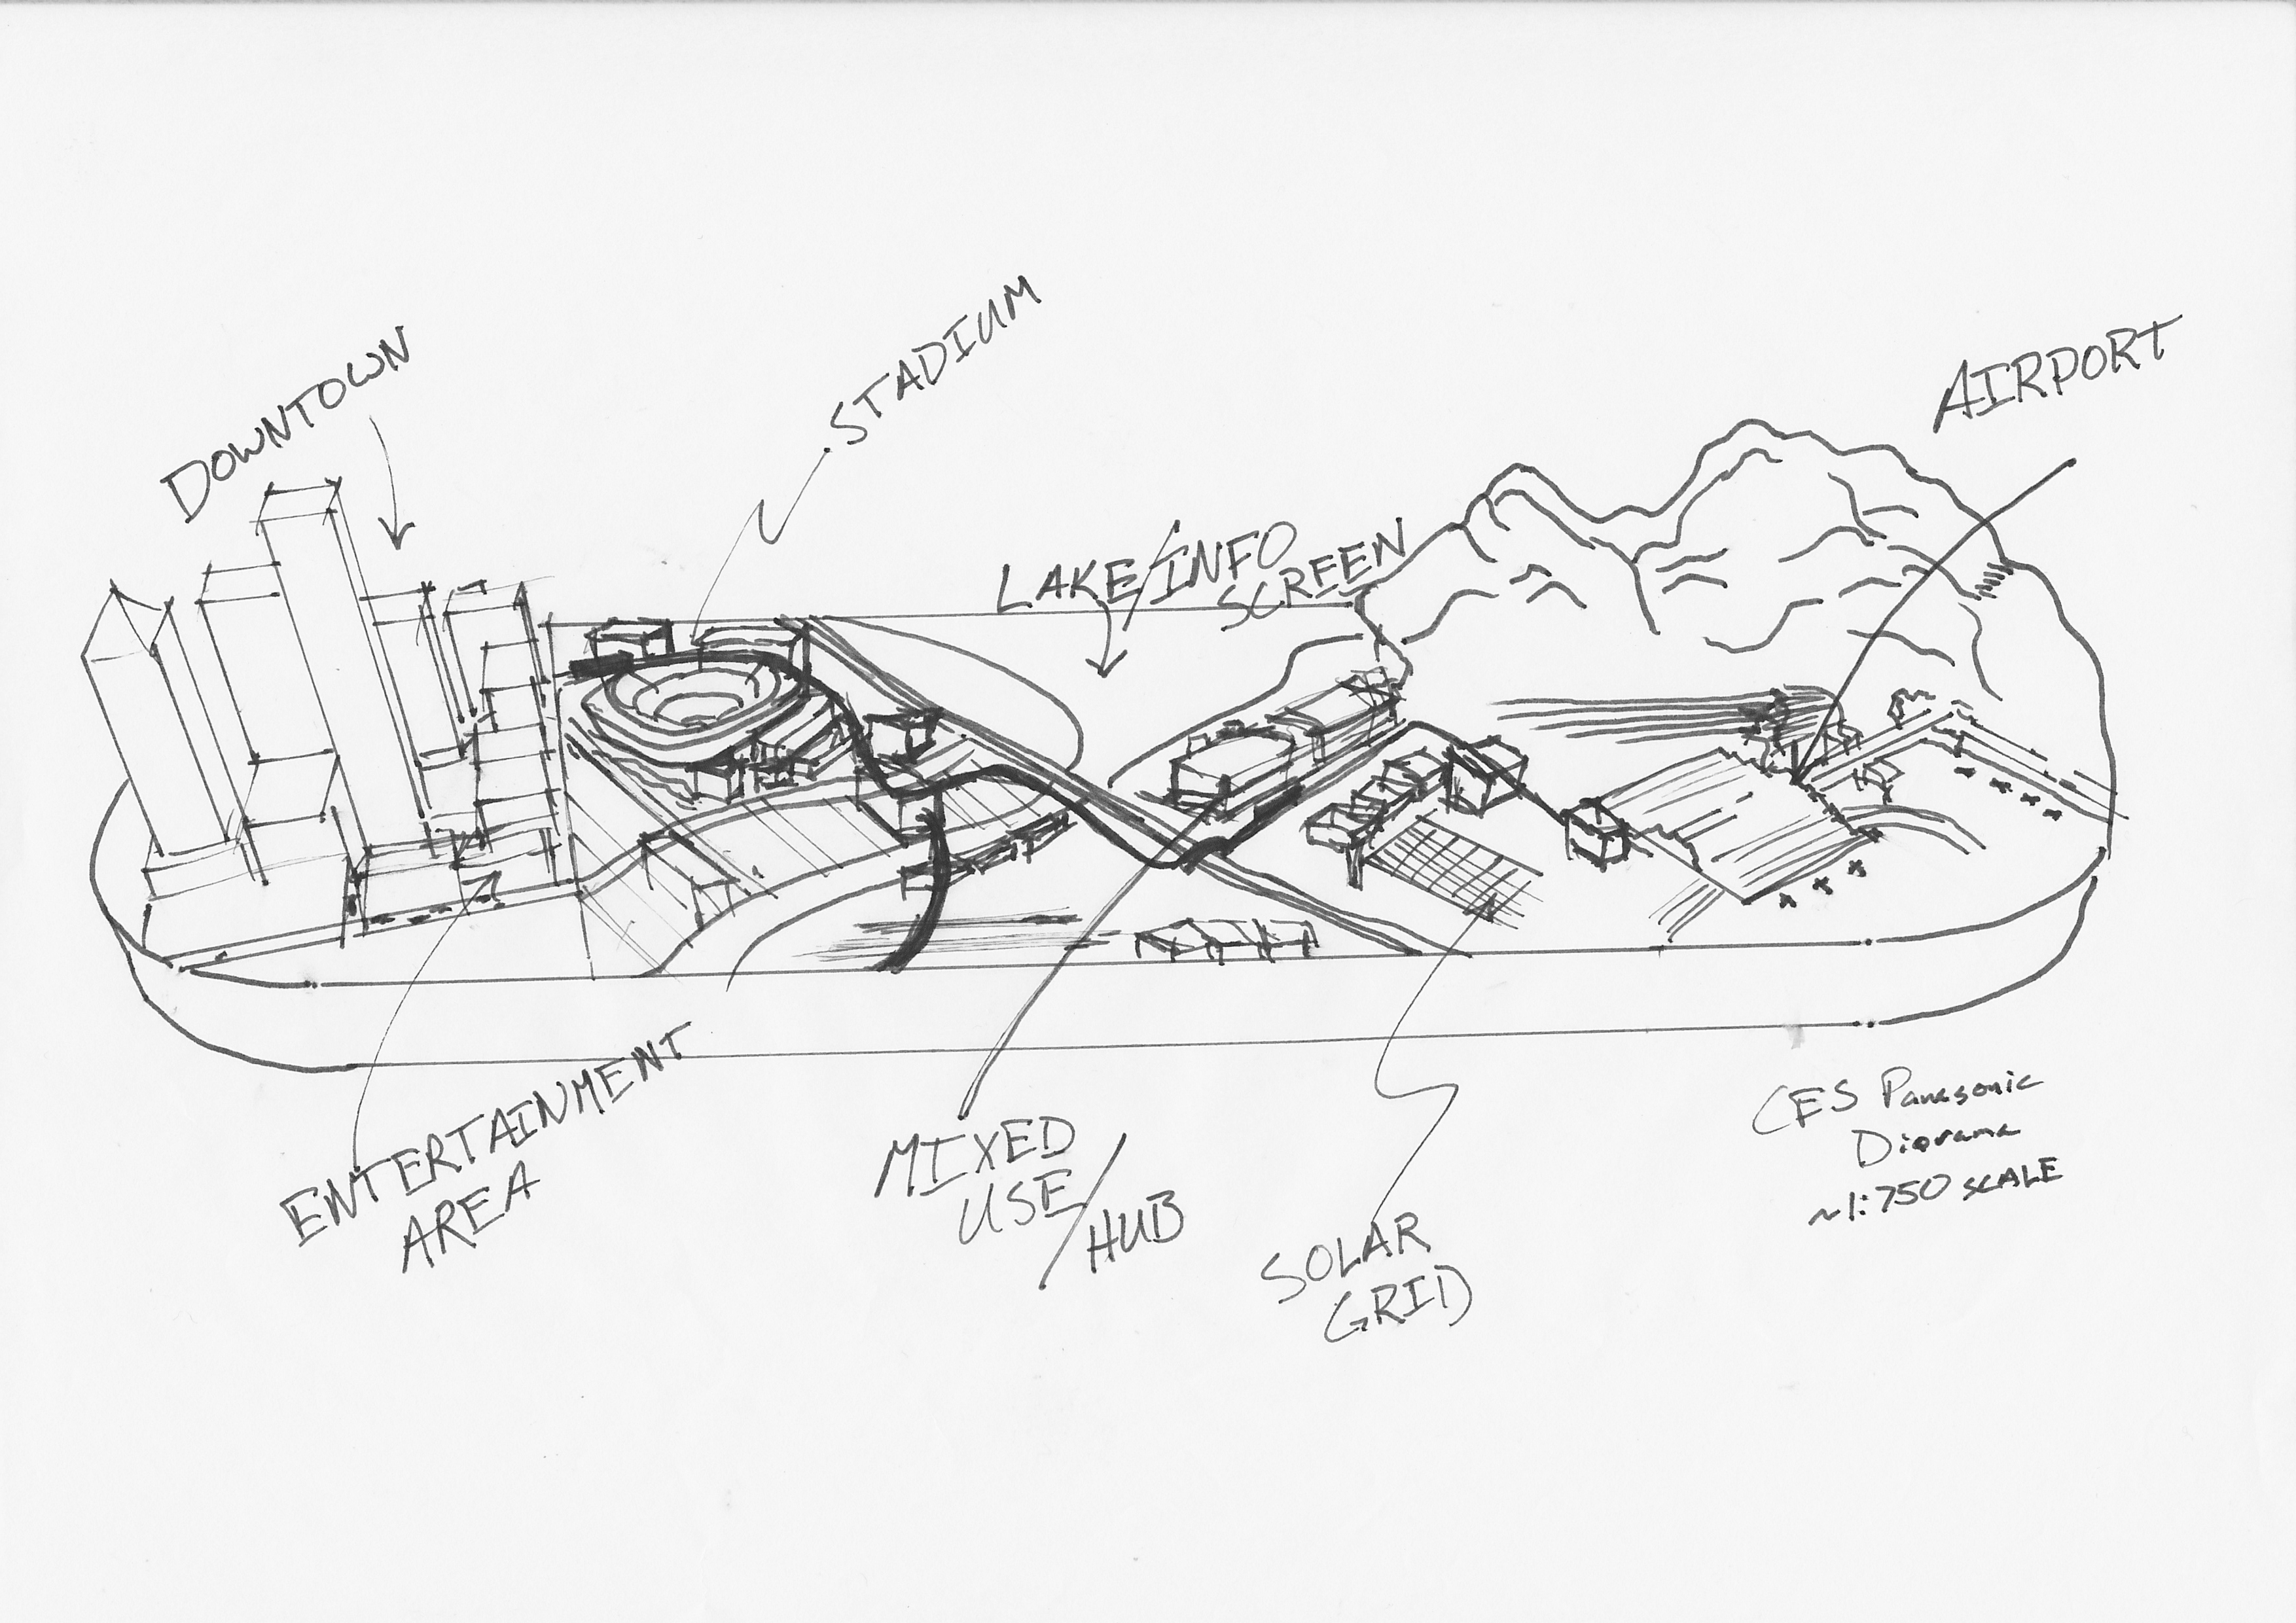 DOWNTOWN
STADIUM
AIRPORT
LAKE/INFO
SCREEN
ENTERTAINMENT
AREA
MIXED
USE/
HUB
SOLAR
GRID
CES Panasonic
Diorama
~1:750 SCALE